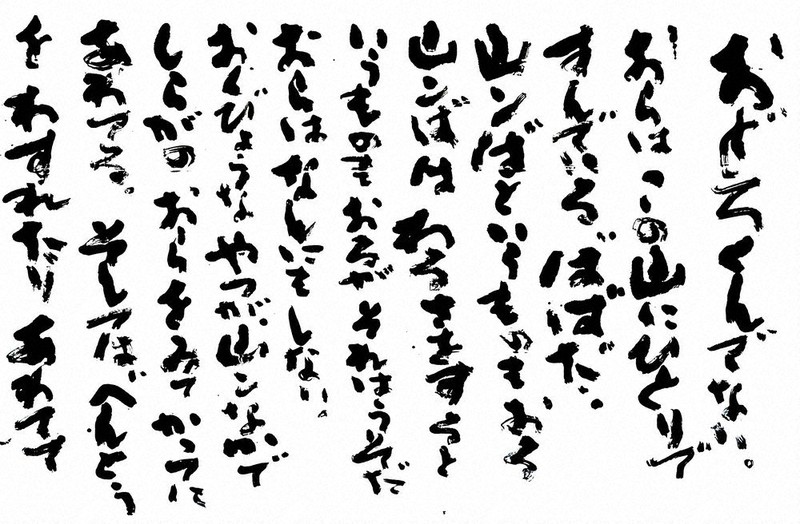 おどろくんでない。
おらは この山にひとりで
すんでいる ばばだ。
山ンばという ものも おる
山ンばは わるさをすると
いうものも おるが それはうそだ
おらは なんにも しない。
おくびょうな やつが 山ンなかで
しらがの おらをみて かってに
あわてる。 そしてはべんとう
を わすれたり あわてて